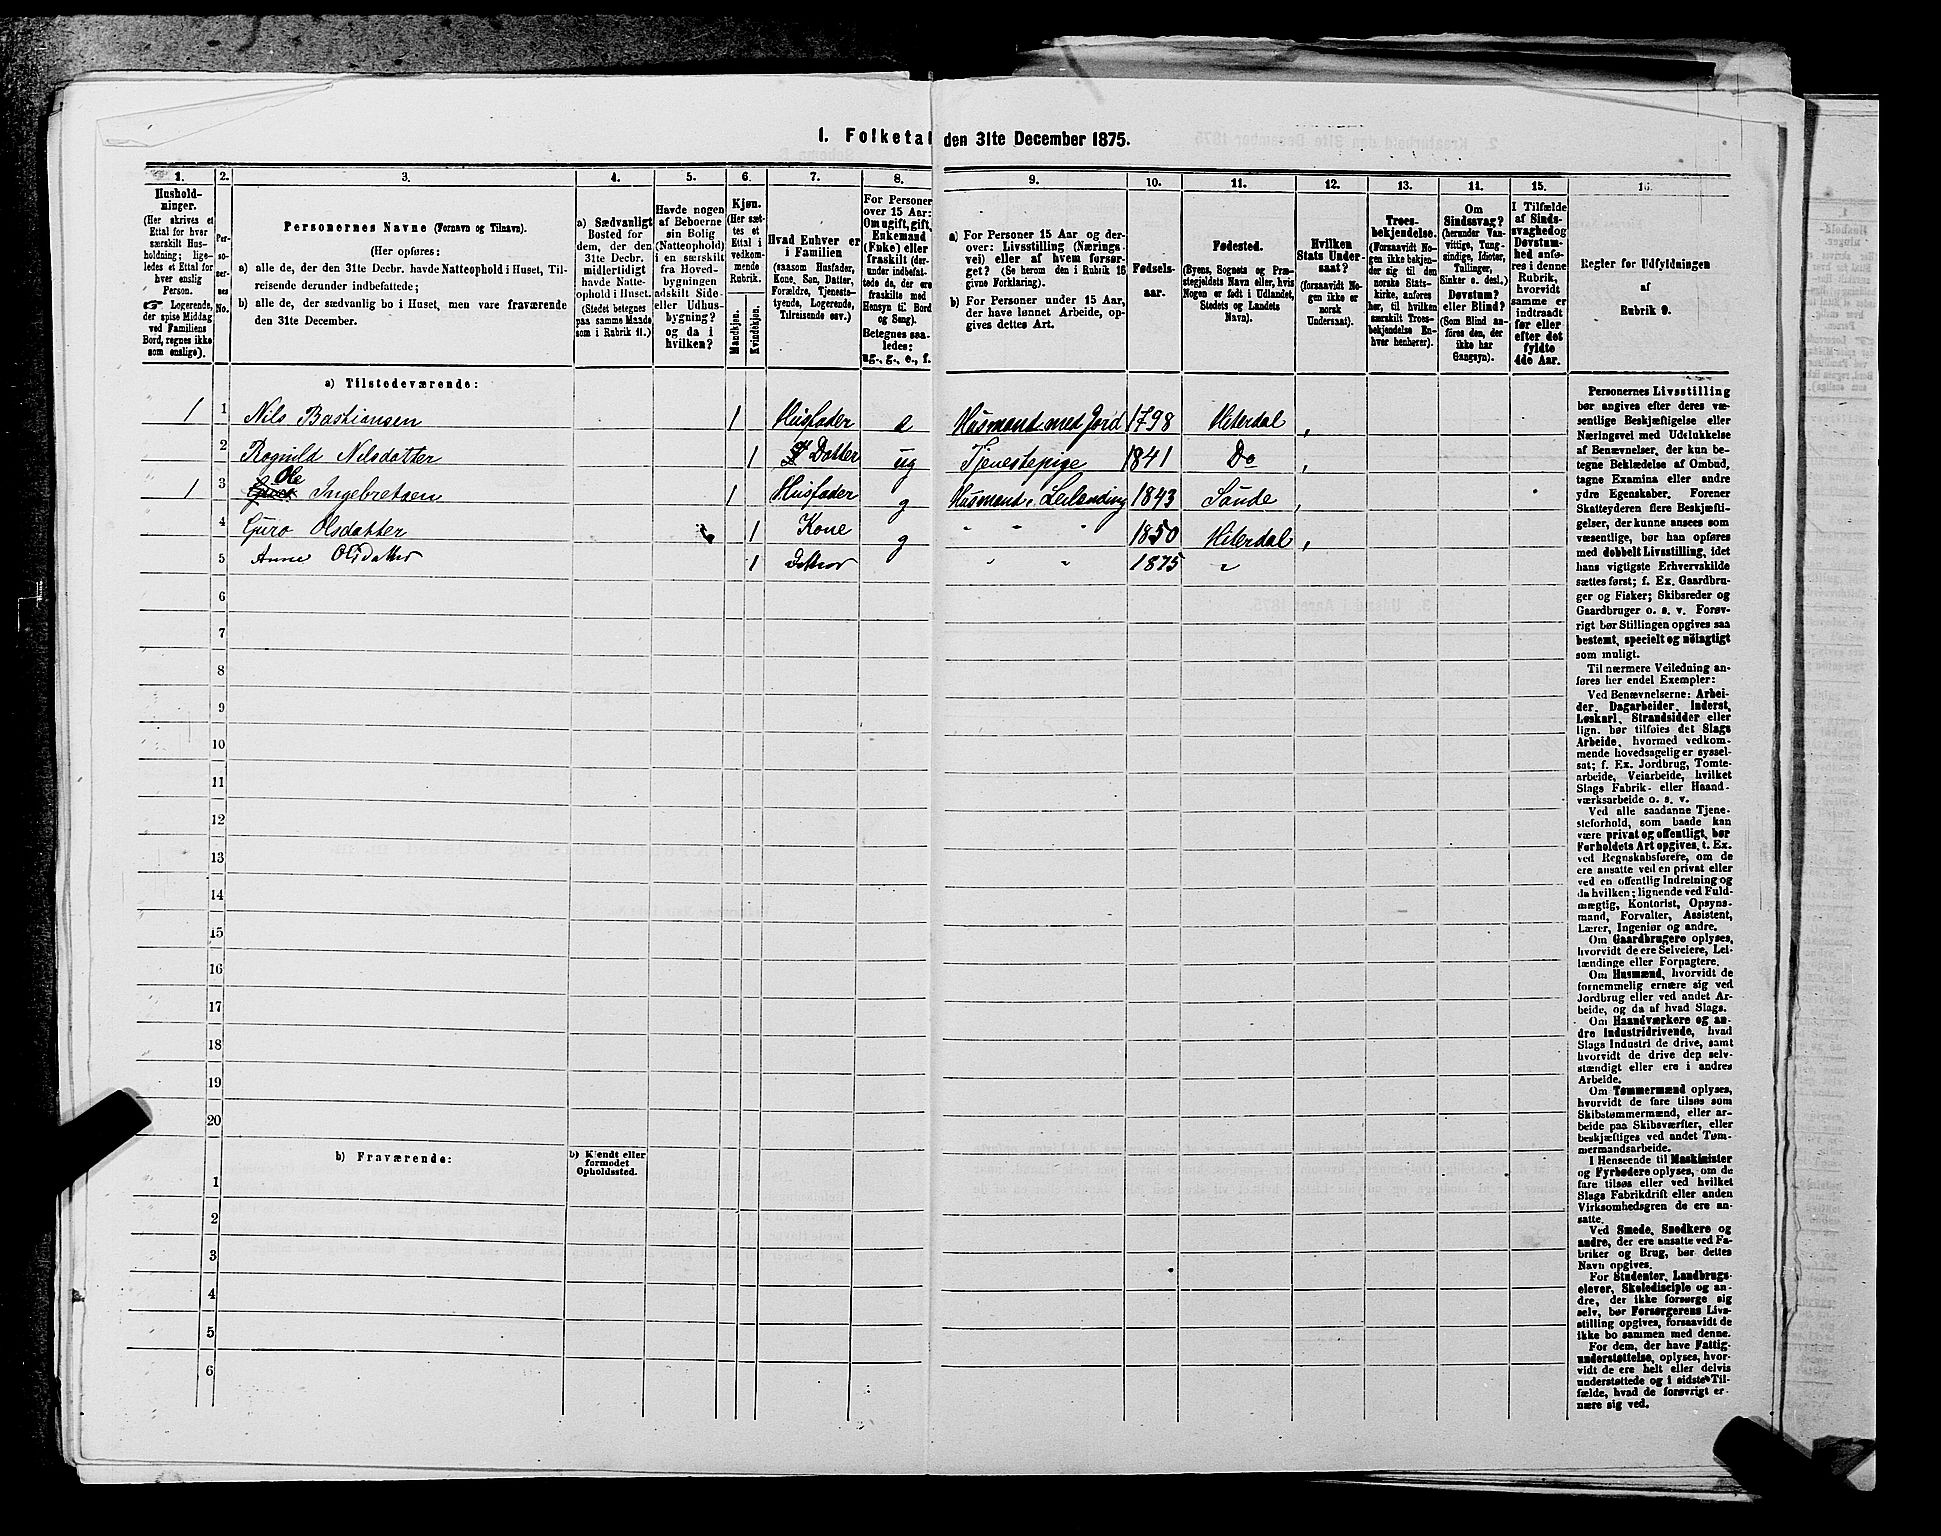 1. Folketal den 31te December 1875.
1.
2.
3.
4.
5.
6.
7.
8.
9.
10.
11.
12.
13.
14.
15.
16.
Hushold-
ninger.
(Her skrives et
Ettal for hver
særskilt Hus-
holdning; lige-
ledes et Ettal for
hver enslig
Person.
☞ Logerende,
der spise Middag
ved Familiens
Bord, regnes ikke
som enslige).
Per-
so-
ner-
nes
No.
Personernes Navne (Fornavn og Tilnavn).
(Her opføres:
a) alle de, der den 31te Decbr. havde Natteophold i Huset, Til-
reisende derunder indbefattede;
b) alle de, der sædvanlig bo i Huset, men vare fraværende
den 31te December.
a) Sædvanligt
Bosted for
dem, der den
31te Decbr.
midlertidigt
havde Natte-
ophold i Huset.
(Stedet betegnes
paa samme Maade
som i Rubrik 11.)
Havde nogen
af Beboerne
sin Bolig
(Natteophold)
i en særskilt
fra Hoved-
bygningen
adskilt Side-
eller Udhus-
bygning?
og da i
hvilken?
Kjøn.
(Her sæt-
tes et
Ettal i
vedkom-
mende
Rubrik.
Mandkjøn.
Kvindekjøn.
Hvad Enhver er
i Familien
(saasom Husfader,
Kone, Søn, Datter,
Forældre, Tjeneste-
tyende, Logerende,
Tilreisende osv.)
For Personer
over 15 Aar:
Om ugift, gift,
Enkemand
(Enke) eller
fraskilt (der-
under indbefat-
tede de, der ere
fraskilte med
Hensyn til Bord
og Seng).
Betegnes saa-
ledes:
ug., g., e., f.
a) For Personer 15 Aar og der-
over: Livsstilling (Nærings-
vei) eller af hvem forsør-
get? (Se herom den i Rubrik 16
givne Forklaring).
b) For Personer under 15 Aar,
der have lønnet Arbeide, op-
gives dettes Art.
Fødsels-
aar.
Fødested.
(Byens, Sognets og Præ-
stegjeldets Navn eller, hvis
Nogen er født i Udlandet,
Stedets og Landets
Navn).
Hvilken
Stats Under-
saat?
(forsaavidt No-
gen ikke er
norsk
Undersaat).
Troes-
bekjendelse.
(Forsaavidt No-
gen ikke bekjen-
der sig til den
norske Stats-
kirke, anføres
her, til hvilken
særskilt Troes-
bekjendelse En-
hver henhører).
Om
Sindssvag?
(herunder Van-
vittige, Tung-
sindige, Idioter,
Tullinger,
Sinker o. desl.)
Døvstum?
eller Blind?
(Som Blind an-
føres den, der
ikke har
Gangsyn).
I Tilfælde
af Sinds-
svaghed og
Døvstum-
hed anfø-
res i denne
Rubrik,
hvorvidt
samme er
indtraadt
før eller
efter det
fyldte
4de Aar.
Regler for Udfyldningen
af
Rubrik 9.
a) Tilstedeværende:
1 1 Nils Bastiansen 1 Husfader e Husmand med Jord 1798 Hiterdal
2 Ragnild Nilsdatter 1 Datter ug Tjenestepige 1841 Do
1 3 Ole Ingebretsen 1 Husfader g Husmand, Leilænding 1843 Sande
4 Guro Olsdatter 1 Kone g " " " 1850 Hiterdal
5 Anne Olsdatter 1 Datter " " 1875 "
6
7
8
9
10
11
12
13
14
15
16
17
18
19
20
b) Fraværende:
b) Kjendt eller
formodet
Opholdssted.
1
2
3
4
5
6
Personernes Livsstilling
bør angives efter deres væ-
sentlige Beskjæftigelse eller
Næringsvei med Udelukkelse
af Benævnelser, der kun be-
tegne Beklædelse af Ombud,
tagne Examina eller andre
ydre Egenskaber. Forener
Skatteyderen flere Beskjæfti-
gelser, der kunne ansees som
væsentlige, bør han opføres
med dobbelt Livsstilling, idet
hans vigtigste Erhvervskilde
sættes først; f. Ex. Gaardbru-
ger og Fisker; Skibsreder og
Gaardbruger o. s. v. Forøv-
rigt bør Stillingen opgives saa
bestemt, specielt og nøiagtigt
som muligt.
Til nærmere Veiledning an-
føres her endel Exempler:
Ved Benævnelserne: Arbei-
der, Dagarbeider, Inderst,
Løskarl, Strandsidder eller
lign. bør tilføies det Slags
Arbeide, hvormed vedkom-
mende hovedsagelig er syssel-
sat; f. Ex. Jordbrug, Tomte-
arbeide, Veiarbeide, hvilket
Slags Fabrik- eller Haand-
værksarbeide o. s. v.
Ved alle saadanne Tjene-
steforhold, som baade kan
være privat og offentligt, bør
Forholdets Art opgives, t. Ex.
ved Regnskabsførere, om de
ere ansatte ved en privat eller
ved en offentlig Indretning og
da hvilken; lignende ved Fuld-
mægtig, Kontorist, Opsyns-
mand, Forvalter, Assistent,
Lærer, Ingeniør og andre.
Om Gaardbrugere oplyses,
hvorvidt de ere Selveiere, Lei-
lændinge eller Forpagtere.
Om Husmænd, hvorvidt de
fornemmelig ernære sig ved
Jordbrug eller ved andet Ar-
beide, og da af hvad Slags.
Om Haandværkere og an-
dre Industridrivende, hvad
Slags Industri de drive, samt
hvorvidt de drive den selv-
stændigt eller ere i andres
Arbeide.
Om Tømmermænd oplyses,
hvorvidt de fare tilsøs som
Skibstømmermænd, eller ar-
beide paa Skibsværfter, eller
beskjæftiges ved andet Tøm-
mermandsarbeide.
I Henseende til Maskinister
og Fyrbødere oplyses, om de
fare tilsøs eller ved hvilket
Slags Fabrikdrift eller anden
Virksomhedsgren de ere an-
satte.
Ved Smede, Snedkere og
andre, der ere ansatte ved Fa-
briker og Brug, bør dettes
Navn opgives.
For Studenter, Landbrugs-
elever, Skoledisciple og an-
dre, der ikke forsørge sig
selv, bør Forsørgerens Livs-
stilling opgives, forsaavidt de
ikke bo sammen med denne.
For dem, der have Fattig-
understøttelse, oplyses, hvor-
vidt de ere helt eller delvis
understøttede og i sidste Til-
fælde, hvad de forøvrigt er-
nære sig ved.